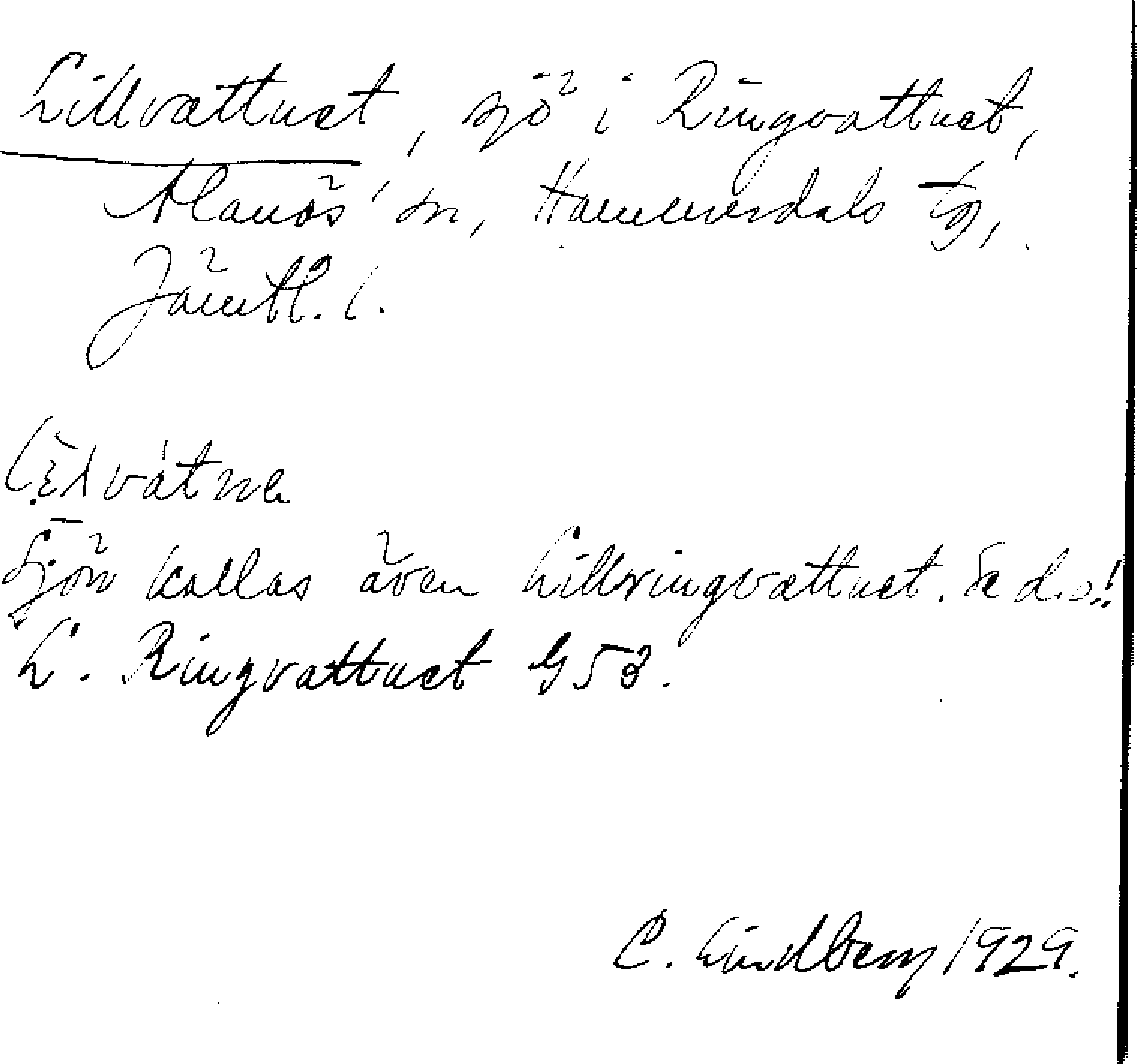 Lillvattnet, sjö i Ringvattnet,
Alanäs sn, Hammerdals tg,
Jämtl. l.
Sjön kallas även Lillringvattnet. Se d.o!!
L. Ringvattnet G53.
C. Lindberg 1929.